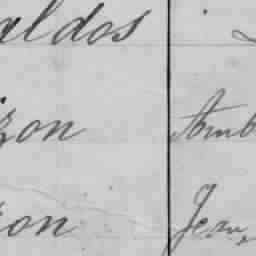 aldos
zon Amb
zon Jean